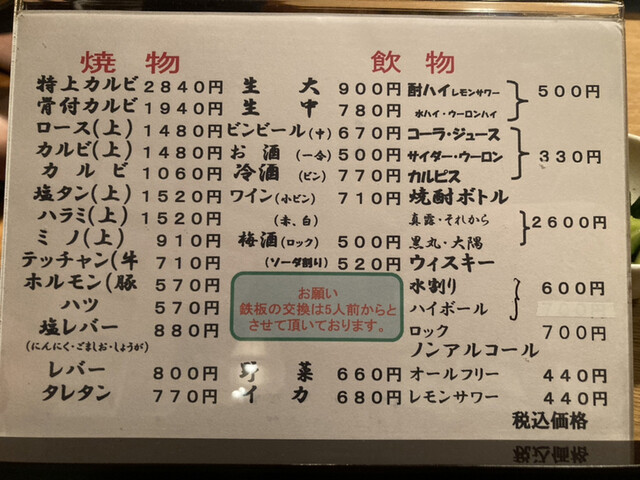 焼物
特上カルビ 2840円
骨付カルビ 1940円
ロース(上) 1480円
カルビ(上) 1480円
カルビ 1060円
塩タン(上) 1520円
ハラミ(上) 1520円
ミノ(上) 910円
テッチャン(牛 710円
ホルモン(豚 570円
ハツ 570円
塩レバー 880円
(にんにく・ごましお・しょうが)
レバー 800円
タレタン 770円
飲物
生大 900円
生中 780円
ビンビール(中) 670円
お酒(一合) 500円
冷酒(ビン) 770円
ワイン(小ビン) 710円
(赤、白)
梅酒(ロック) 500円
(ソーダ割り) 520円
お願い
鉄板の交換は5人前からと
させて頂いております。
野菜 660円
イカ 680円
酎ハイレモンサワー
水ハイ・ウーロンハイ
500円
コーラ・ジュース
サイダー・ウーロン
カルピス
330円
焼酎ボトル
真露・それから
黒丸・大隅
2600円
ウィスキー
水割り
ハイボール
600円
ロック 700円
ノンアルコール
オールフリー 440円
レモンサワー 440円
税込価格